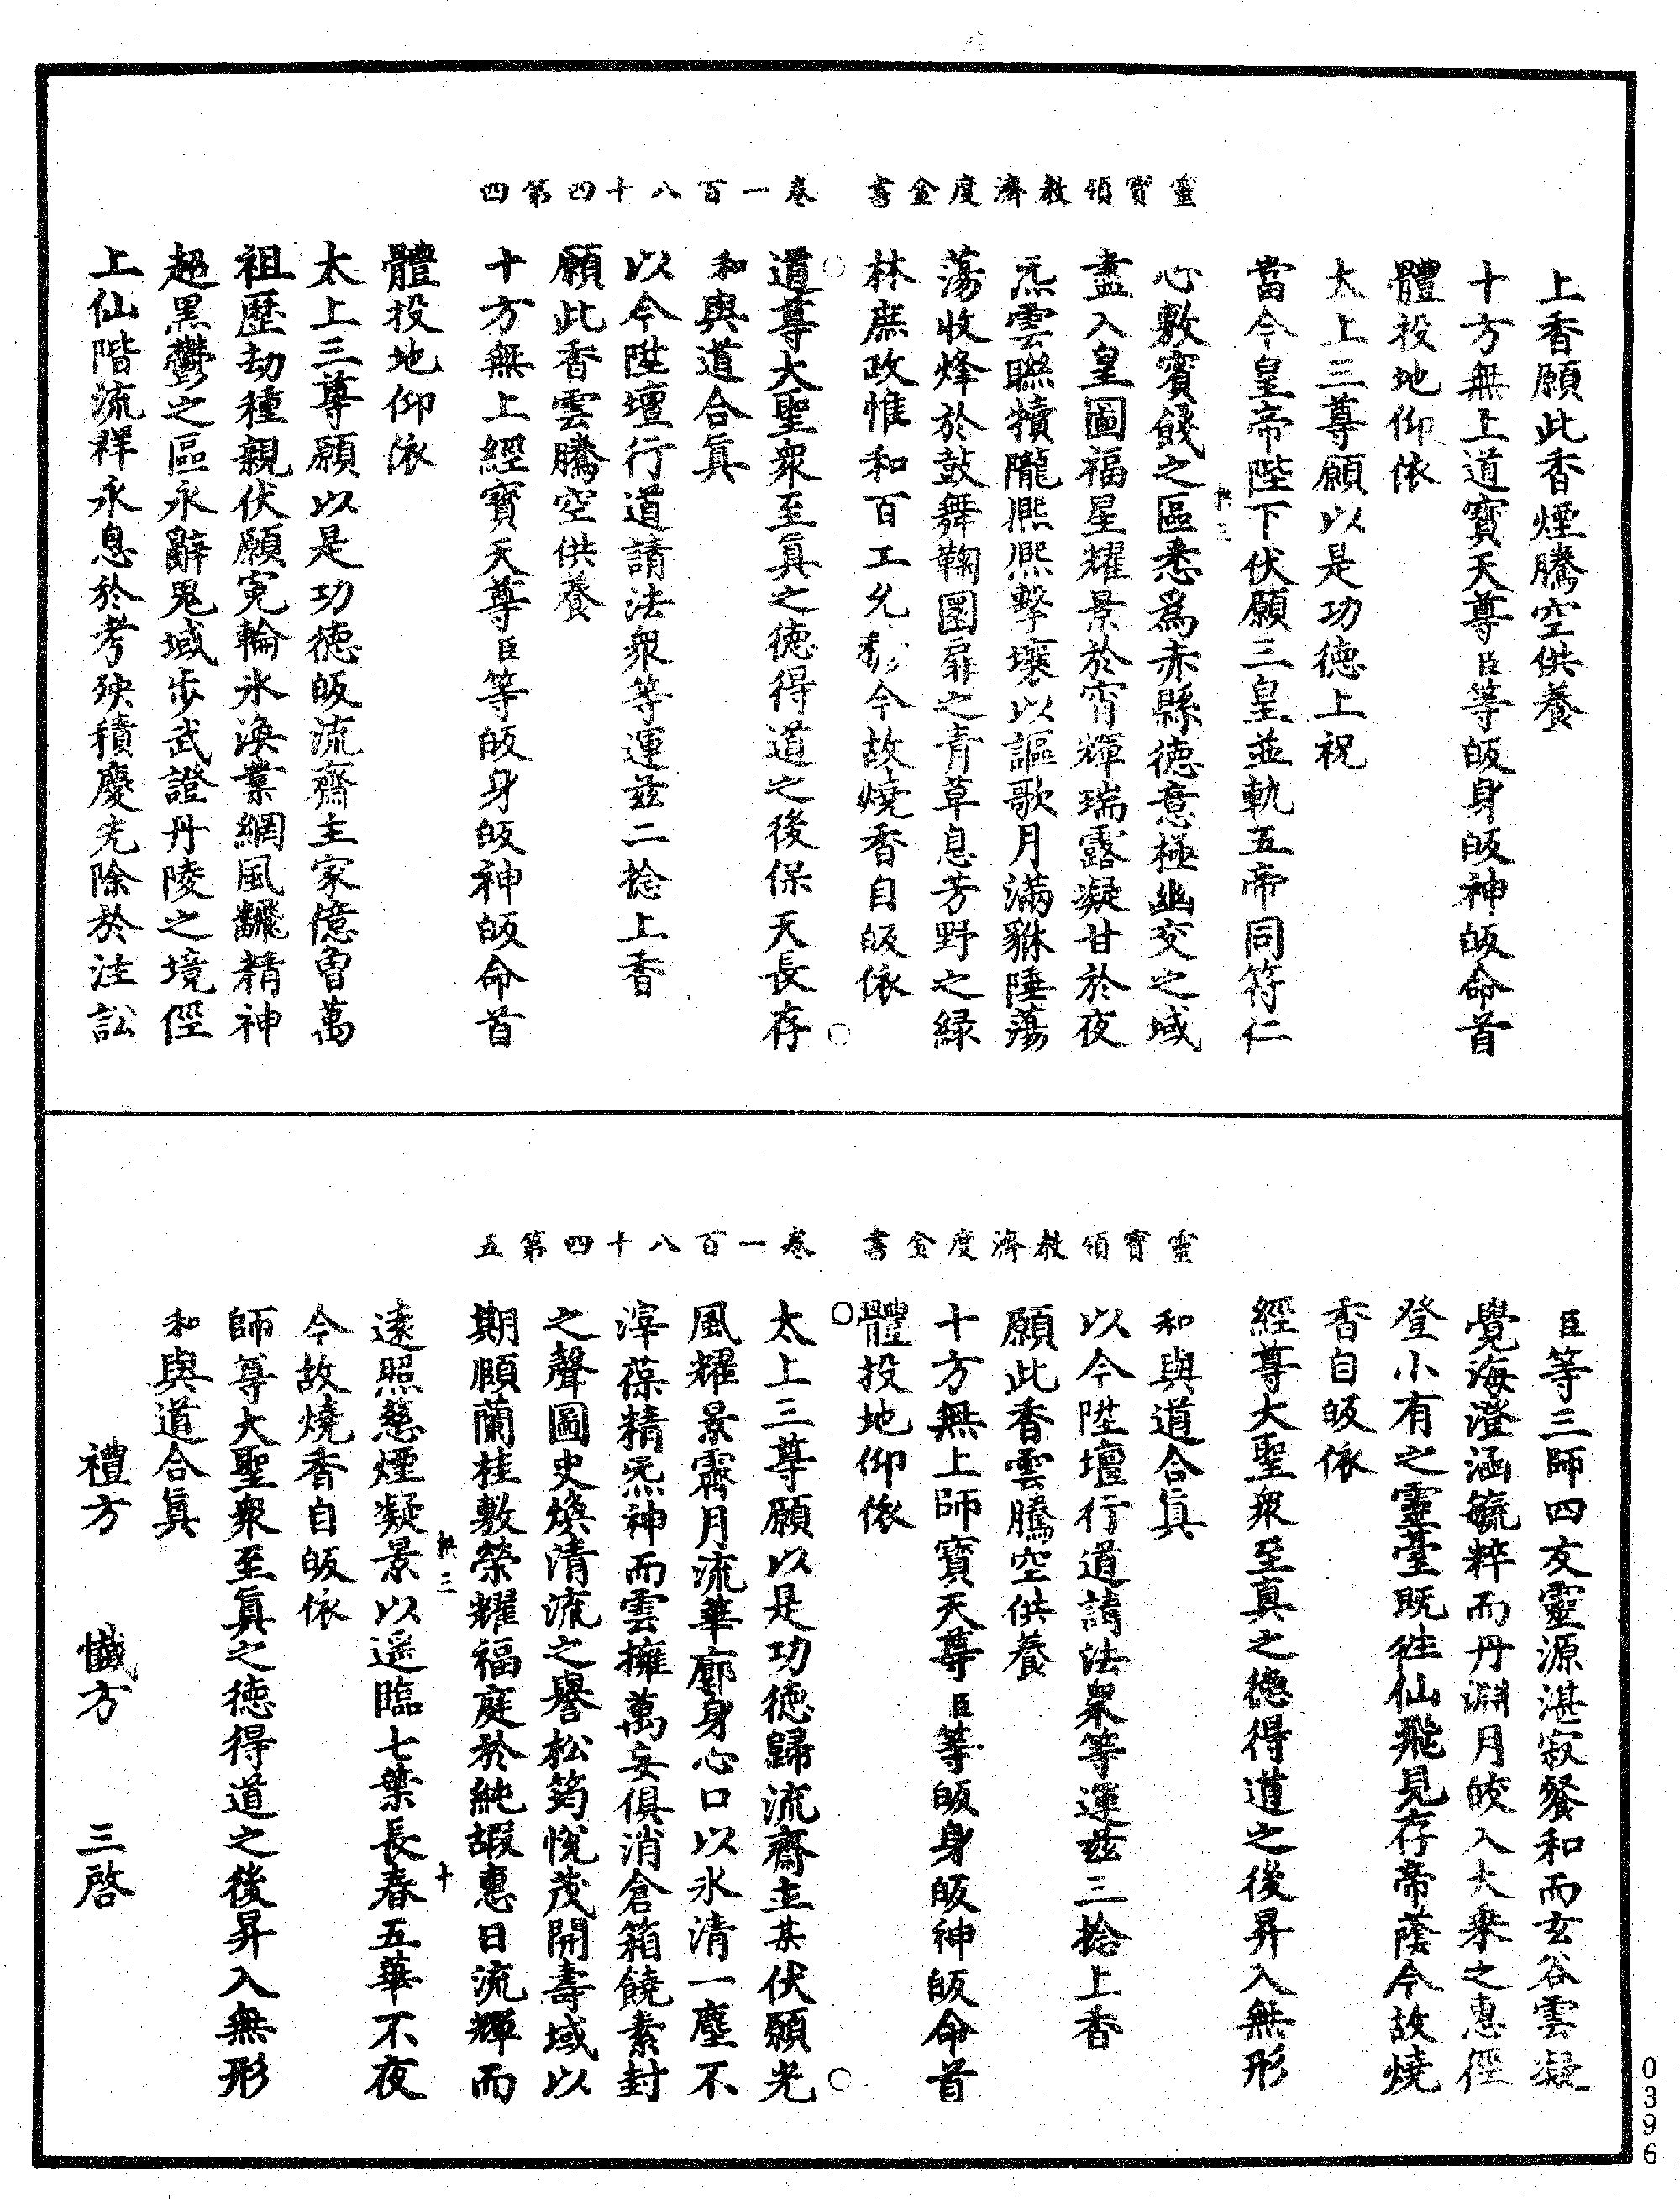 靈寶領教濟度金書　卷一百八十四第四
上香願此香煙騰空供養
十方無上道寶天尊臣等皈身皈神皈命首
體投地仰依
太上三尊願以是功德上祝
當今皇帝陛下伏願三皇並軌五帝同符仁
心敷賓餞之區悉為赤縣德意極幽交之域
盡入皇圖福星耀景於宵輝瑞露凝甘於夜
炁雲聯犢隴熙熙擊壤以謳歌月滿貅陲蕩
蕩收烽於鼓舞鞠圄扉之青草息芳野之綠
林庶政惟和百工允釐今故燒香自皈依
道尊大聖眾至真之德得道之後保天長存
和與道合真
以今陞壇行道請法眾等運茲二捻上香
願此香雲騰空供養
十方無上經寶天尊臣等皈身皈神皈命首
體投地仰依
太上三尊願以是功德皈流齋主家億曾萬
祖歷劫種親伏願冤輪氷渙業網風飜精神
超黑鬱之區永辭鬼域步武證丹陵之境徑
上仙階流祥永息於考殃積慶先除於注訟
靈寶領教濟度金書　卷一百八十四第五
臣等三師四友靈源湛寂餐和而玄谷雲凝
覺海澄涵毓粹而丹淵月皎入大乘之惠徑
登小有之靈臺既往仙飛見存帝蔭今故燒
香自皈依
經尊大聖眾至真之德得道之後昇入無形
和與道合真
以今陞壇行道請法眾等運茲三捻上香
願此香雲騰空供養
十方無上師寶天尊臣等皈身皈神皈命首
體投地仰依
太上三尊願以是功德歸流齋主某伏願光
風耀景霽月流華廓身心口以氷清一塵不
滓葆精炁神而雲擁萬妄俱消倉箱饒素封
之聲圖史煥清流之譽松筠悅茂開壽域以
期頤蘭桂敷榮耀福庭於純嘏惠日流輝而
遠照慈煙凝景以遥臨七葉長春五華不夜
今故燒香自皈依
師尊大聖眾至真之德得道之後昇入無形
和與道合真
禮方　懺方　三啓
0396